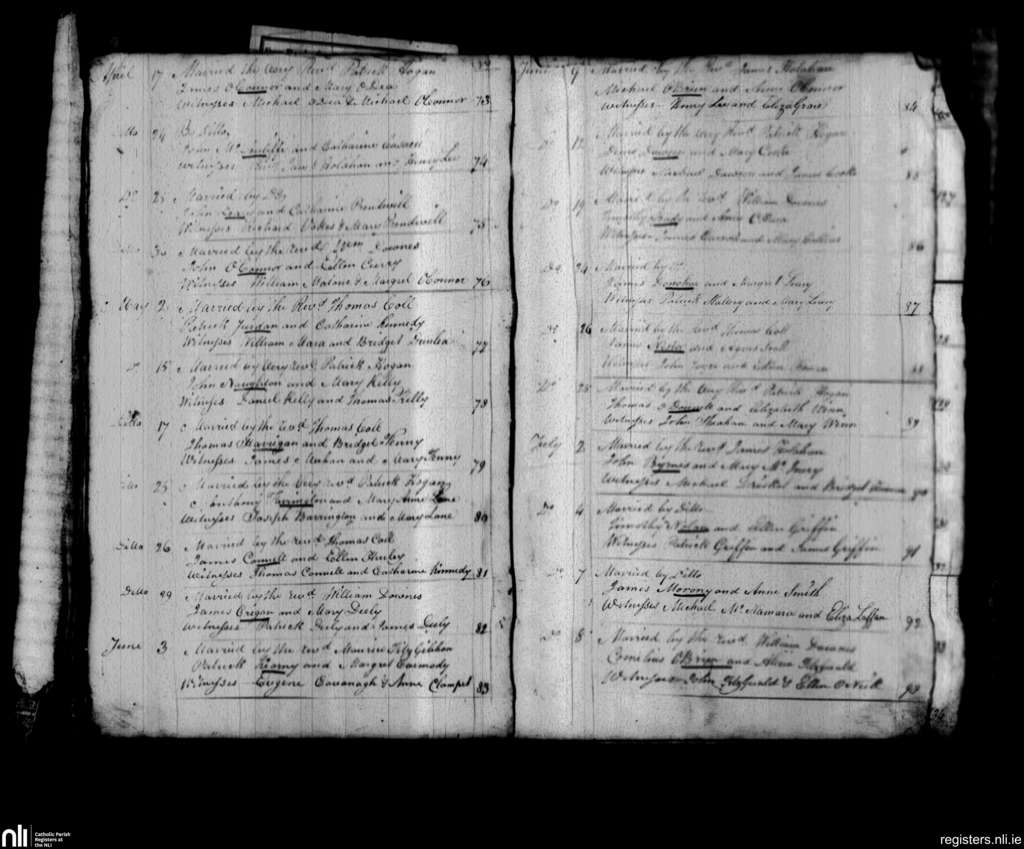 April 17 Married the Very Revd Patrick Hogan
James O'Connor and Mary O'Dea
Witnesses Michael O'Dea & Michael O'Connor 73
Ditto 24 By Ditto
John and Catharine
Witnesses Holahan and Henry Lee 74
Do 25 Married by Do
John and Catharine Prendivill
Witnesses Richard Vokes & Mary Prendivill 75
Ditto 30 Married by the Revd Wm Downes
John O'Connor and Ellen Curry
Witnesses William Malone & Margret O'Connor 76
May 2 Married by the Revd Thomas Coll
Patrick Jurdan and Catharine Kennedy
Witnesses William Mara and Bridget Dunlea 77
Do 15 Married by Very Revd Patrick Hogan
John Naughton and Mary Kelly
Witnesses Daniel Kelly and Thomas Kelly 78
Ditto 17 Married by the Revd Thomas Coll
Thomas Harrigan and Bridget Henny
Witnesses James and Mary Henny 79
Ditto 25 Married by the Very Revd Patrick Hogan
Anthony and Mary Anne Lane
Witnesses Joseph Barrington and Mary Lane 80
Ditto 26 Married by the Revd Thomas Coll
James Connell and Ellen Hurley
Witnesses Thomas Connell and Catharine Kennedy 81
Ditto 29 Married by the Revd William Downes
James Crigan and Mary Deely
Witnesses Patrick Deely and James Deely 82
June 3 Married by the Revd Maurice FitzGibbon
Patrick Kearny and Margret Carmody
Witnesses Eugene Cavanagh & Anne Clampet 83
June 9 Married by the Revd James Holahan
Michael O'Brien and Anne O'Connor
Witnesses Henry Lee and Eliza Grace 84
Do 12 Married by the Very Revd Patrick Hogan
Denis Dawson and Mary Cooke
Witnesses Michael Dawson and James Cooke 85
Do 19 Married by the Revd William Downes
Timothy Grady and Anne O'Dea
Witnesses James and Mary Collins 86
Do 24 Married by Do
James Donohoe and Margret Leary
Witnesses Patrick Slattery and Mary Leary 87
Do 26 Married by the Revd Thomas Coll
James and Agnes
Witnesses John Joyce and Ellen 88
Do 28 Married by the Very Revd Patrick Hogan
Thomas and Elizabeth Winn
Witnesses John Sheahan and Mary Winn 89
July 2 Married by the Revd James Holahan
John Byrnes and Mary McInery
Witnesses Michael Driskel and Bridget 90
Do 4 Married by Ditto
Timothy Nolan and Ellen Griffin
Witnesses Patrick Griffin and James Griffin 91
Do 7 Married by Ditto
James Morony and Anne Smith
Witnesses Michael McNamara and Eliza Laffan 92
Do 8 Married by the Revd William Downes
Cornelius O'Brien and Alicia Fitzgerald
Witnesses John Fitzgerald & Ellen O'Neill 93
nli
Catholic Parish
Registers at
the NLI
registers.nli.ie